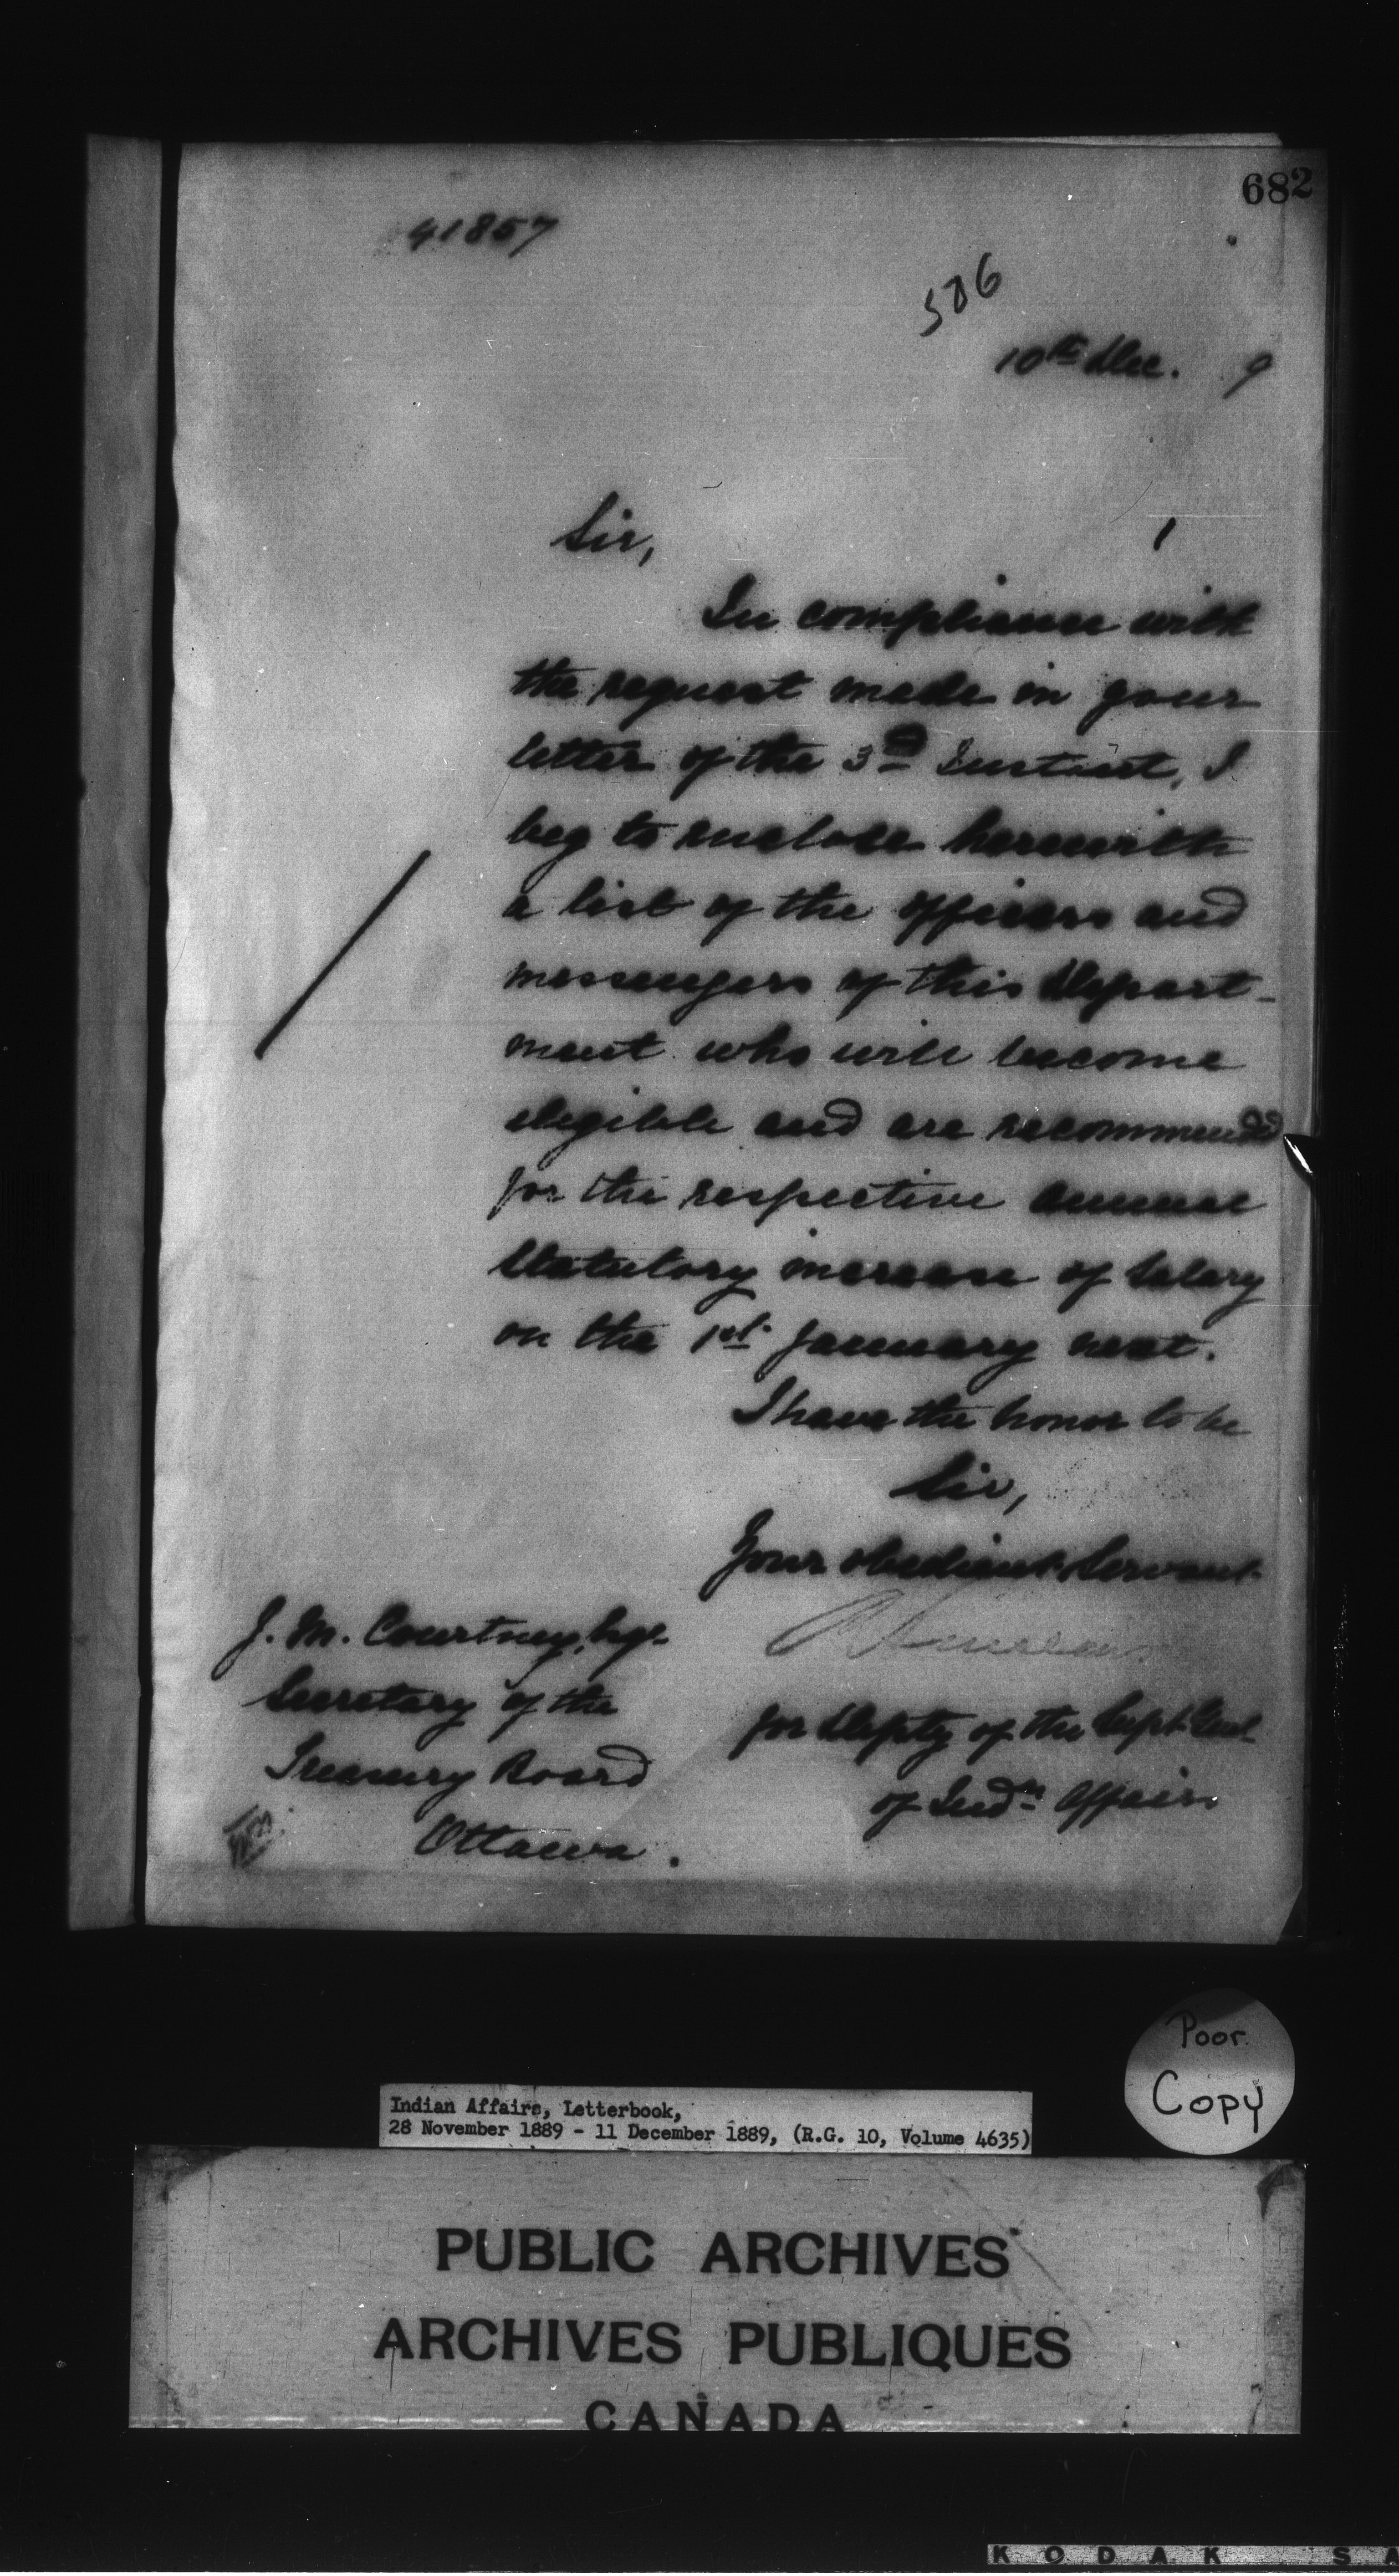 682
41857
506
10th Dec. 9
Sir,
In compliance with
the request made in your
letter of the 3rd Instant, I
beg to enclose herewith
a list of the officers and
messengers of this Depart-
ment who will become
eligible and are recommended
for the respective annual
Statutory increase of Salary
on the 1st January next.
I have the honor to be
Sir,
Your obedient Servant
J. M. Courtney, Esq.
Secretary of the
Treasury Board
Ottawa.
for Depty of the Supt Genl
of Indn Affairs
Poor
Copy
Indian Affairs, Letterbook,
28 November 1889 - 11 December 1889, (R.G. 10, Volume 4635)
PUBLIC ARCHIVES
ARCHIVES PUBLIQUES
CANADA
KODAK SA